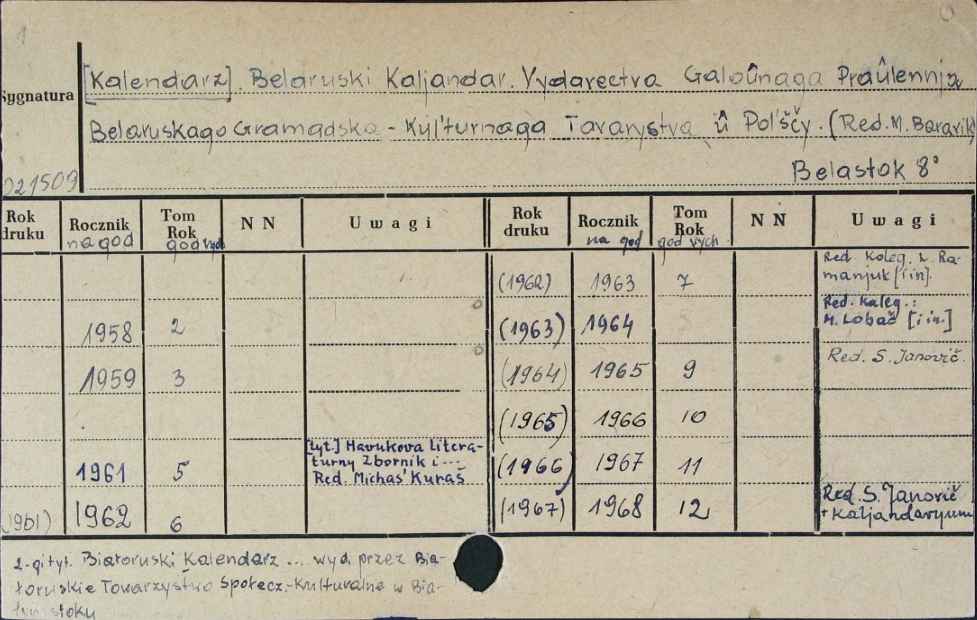 1
Sygnatura
[Kalendarz]. Belaruski Kaljandar. Vydavectva Galoŭnaga Praŭlennja
Belaruskago Gramadska - Kul'turnaga Tavarystva ŭ Pol'ščy. (Red. M.
021509
Belastok 8°
Rok druku Rocznik na god Tom Rok god vych N N Uwagi Rok druku Rocznik na god Tom Rok god vych N N Uwagi
(1962) 1963 7 Red. Koleg. L. Ra-
manjuk [i in].
1958 2 (1963) 1964 Red. Kaleg.:
M. Lobač [i in.]
1959 3 (1964) 1965 9 Red. S. Janovič.
(1965) 1966 10
1961 5 [tyt.] Navukova Litera-
turny Zbornik i ...
Red. Michaś Kuraś
(1966) 1967 11
1961) 1962 6 (1967) 1968 12 Red. S. Janovič
+ Kaljandaryum
2-gi tyt. Białoruski Kalendarz ... wyd. przez Bia-
łoruskie Towarzystwo Społecz.-Kulturalne w Bia-
łymstoku